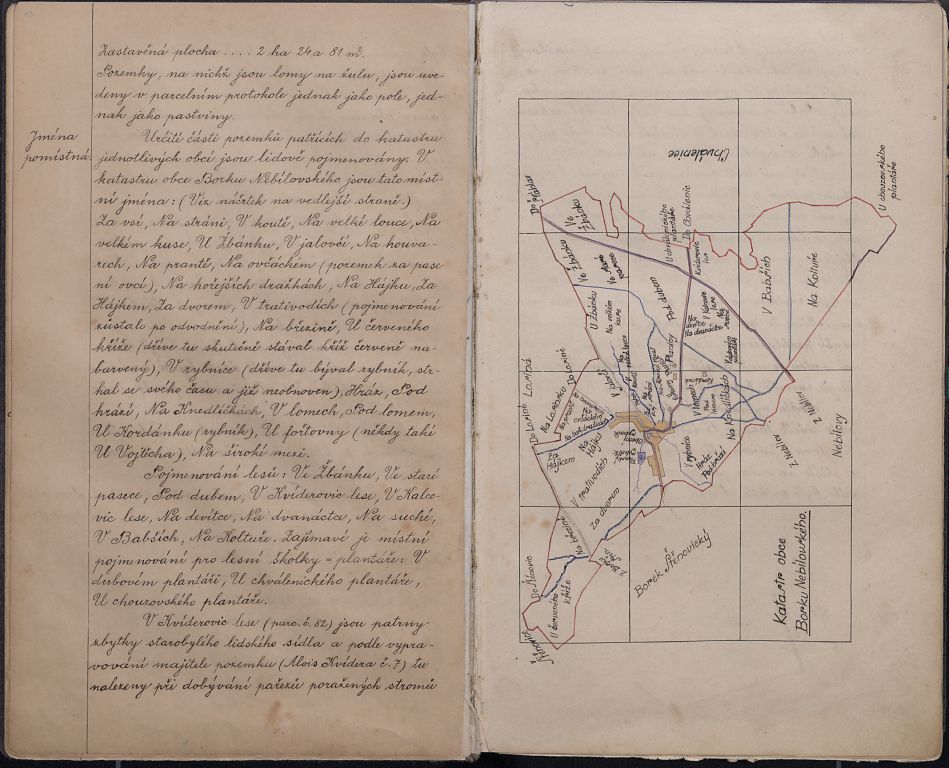 Zastavěná plocha .... 2 ha 24 a 81 m².
Pozemky, na nichž jsou lomy na žulu, jsou uve-
deny v parcelním protokole jednak jako pole, jed-
nak jako pastviny.
Jména
pomístná.
Určité části pozemků patřících do katastru
jednotlivých obcí jsou lidově pojmenovány. V
katastru obce Borku Nebílovského jsou tato míst-
ní jména: (Viz náčrtek na vedlejší straně.)
Za vsí, Na stráni, V koutě, Na velké louce, Na
velkém kuse, U Žbánku, V jalovčí, Na houva-
rech, Na prantě, Na ovčáckém (pozemek za pase-
ní ovcí), Na hořejších dražkách, Na Hájku, Za
Hájkem, Za dvorem, V trativodích (pojmenování
zůstalo po odvodnění), Na březině, U červeného
kříže (dříve tu skutečně stával kříž červeně na-
barvený), V rybníce (dříve tu býval rybník, str-
hal se svého času a již neobnoven), Hráz, Pod
hrází, Na Knedličkách, V lomech, Pod lomem,
U Kordánku (rybník), U fořtovny (někdy také
U Vojtěcha), Na široké mezi.
Pojmenování lesů: Ve Žbánku, Ve staré
pasece, Pod dubem, V Kviderovic lese, V Kalco-
vic lese, Na devítce, Na dvanáctce, Na suché,
V Babších, Na Koltuře. Zajímavé je místní
pojmenování pro lesní školky = plantáže: V
dubovém plantáži, U chválenického plantáže,
U chouzovského plantáže.
V Kviderovic lese (parc. č. 82) jsou patrny
zbytky starobylého lidského sídla a podle vypra-
vování majitele pozemku (Alois Kvídera č. 7) tu
nalezeny při dobývání pařezů poražených stromů
Chválenice
U chouzovského
plantáže
Ve
Žbánku
U chválenického
plantáže
Do Chválenic
Kviderovic
les
Ve Žbánku
Ve staré
pasece
Pod dubem
V Babších
Na Koltuře
U Žbánku
Na velkém
kuse
Na
devítce
Na dvanáctce
Do Losiné
Losiná
Na
Hájku
Za
Hájkem
V trativodích
Za dvorem
V lomech
Pod
lomem
Na Knedličkách
V rybníce
Hráz
Pod hrází
Z Nebílov
Nebílovy
Na březině
Z Borku
Borek Štěnovický
Do Štěnovic
U červeného
Kříže
Štěnovice
Katastr obce
Borku Nebílovského.